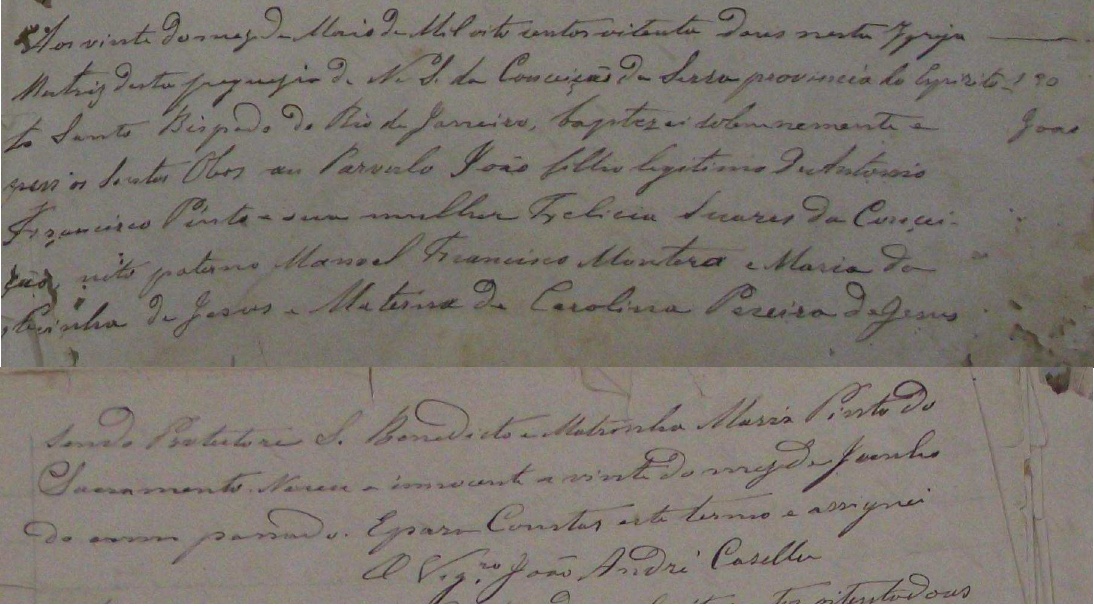 Aos vinte do mez de Maio de Mil oito centos oitenta dous nesta Ygreja
Matriz desta freguezia de N. S. da Conceição da Serra provincia do Espirito
to Santo Bispado do Rio de Janeiro, baptezei solemnemente e
João
puz os Santos Olios au Parvulo João filho legitimo de Antonio
Francisco Pinto e sua mulher Felicia Suares da Concei-
ção, neto paterno Manoel Francisco Montera e Maria da
de Jesus e Materna de Carolina Pereira de Jesus
sendo Protectore S. Benedicto e Matronha Maria Pinto do
Sacramento. Naceu o innocente a vinte do mez de Juenho
do anno passado. E para Constar este termo e assignei
O Vigro João André Casella
oitenta dous